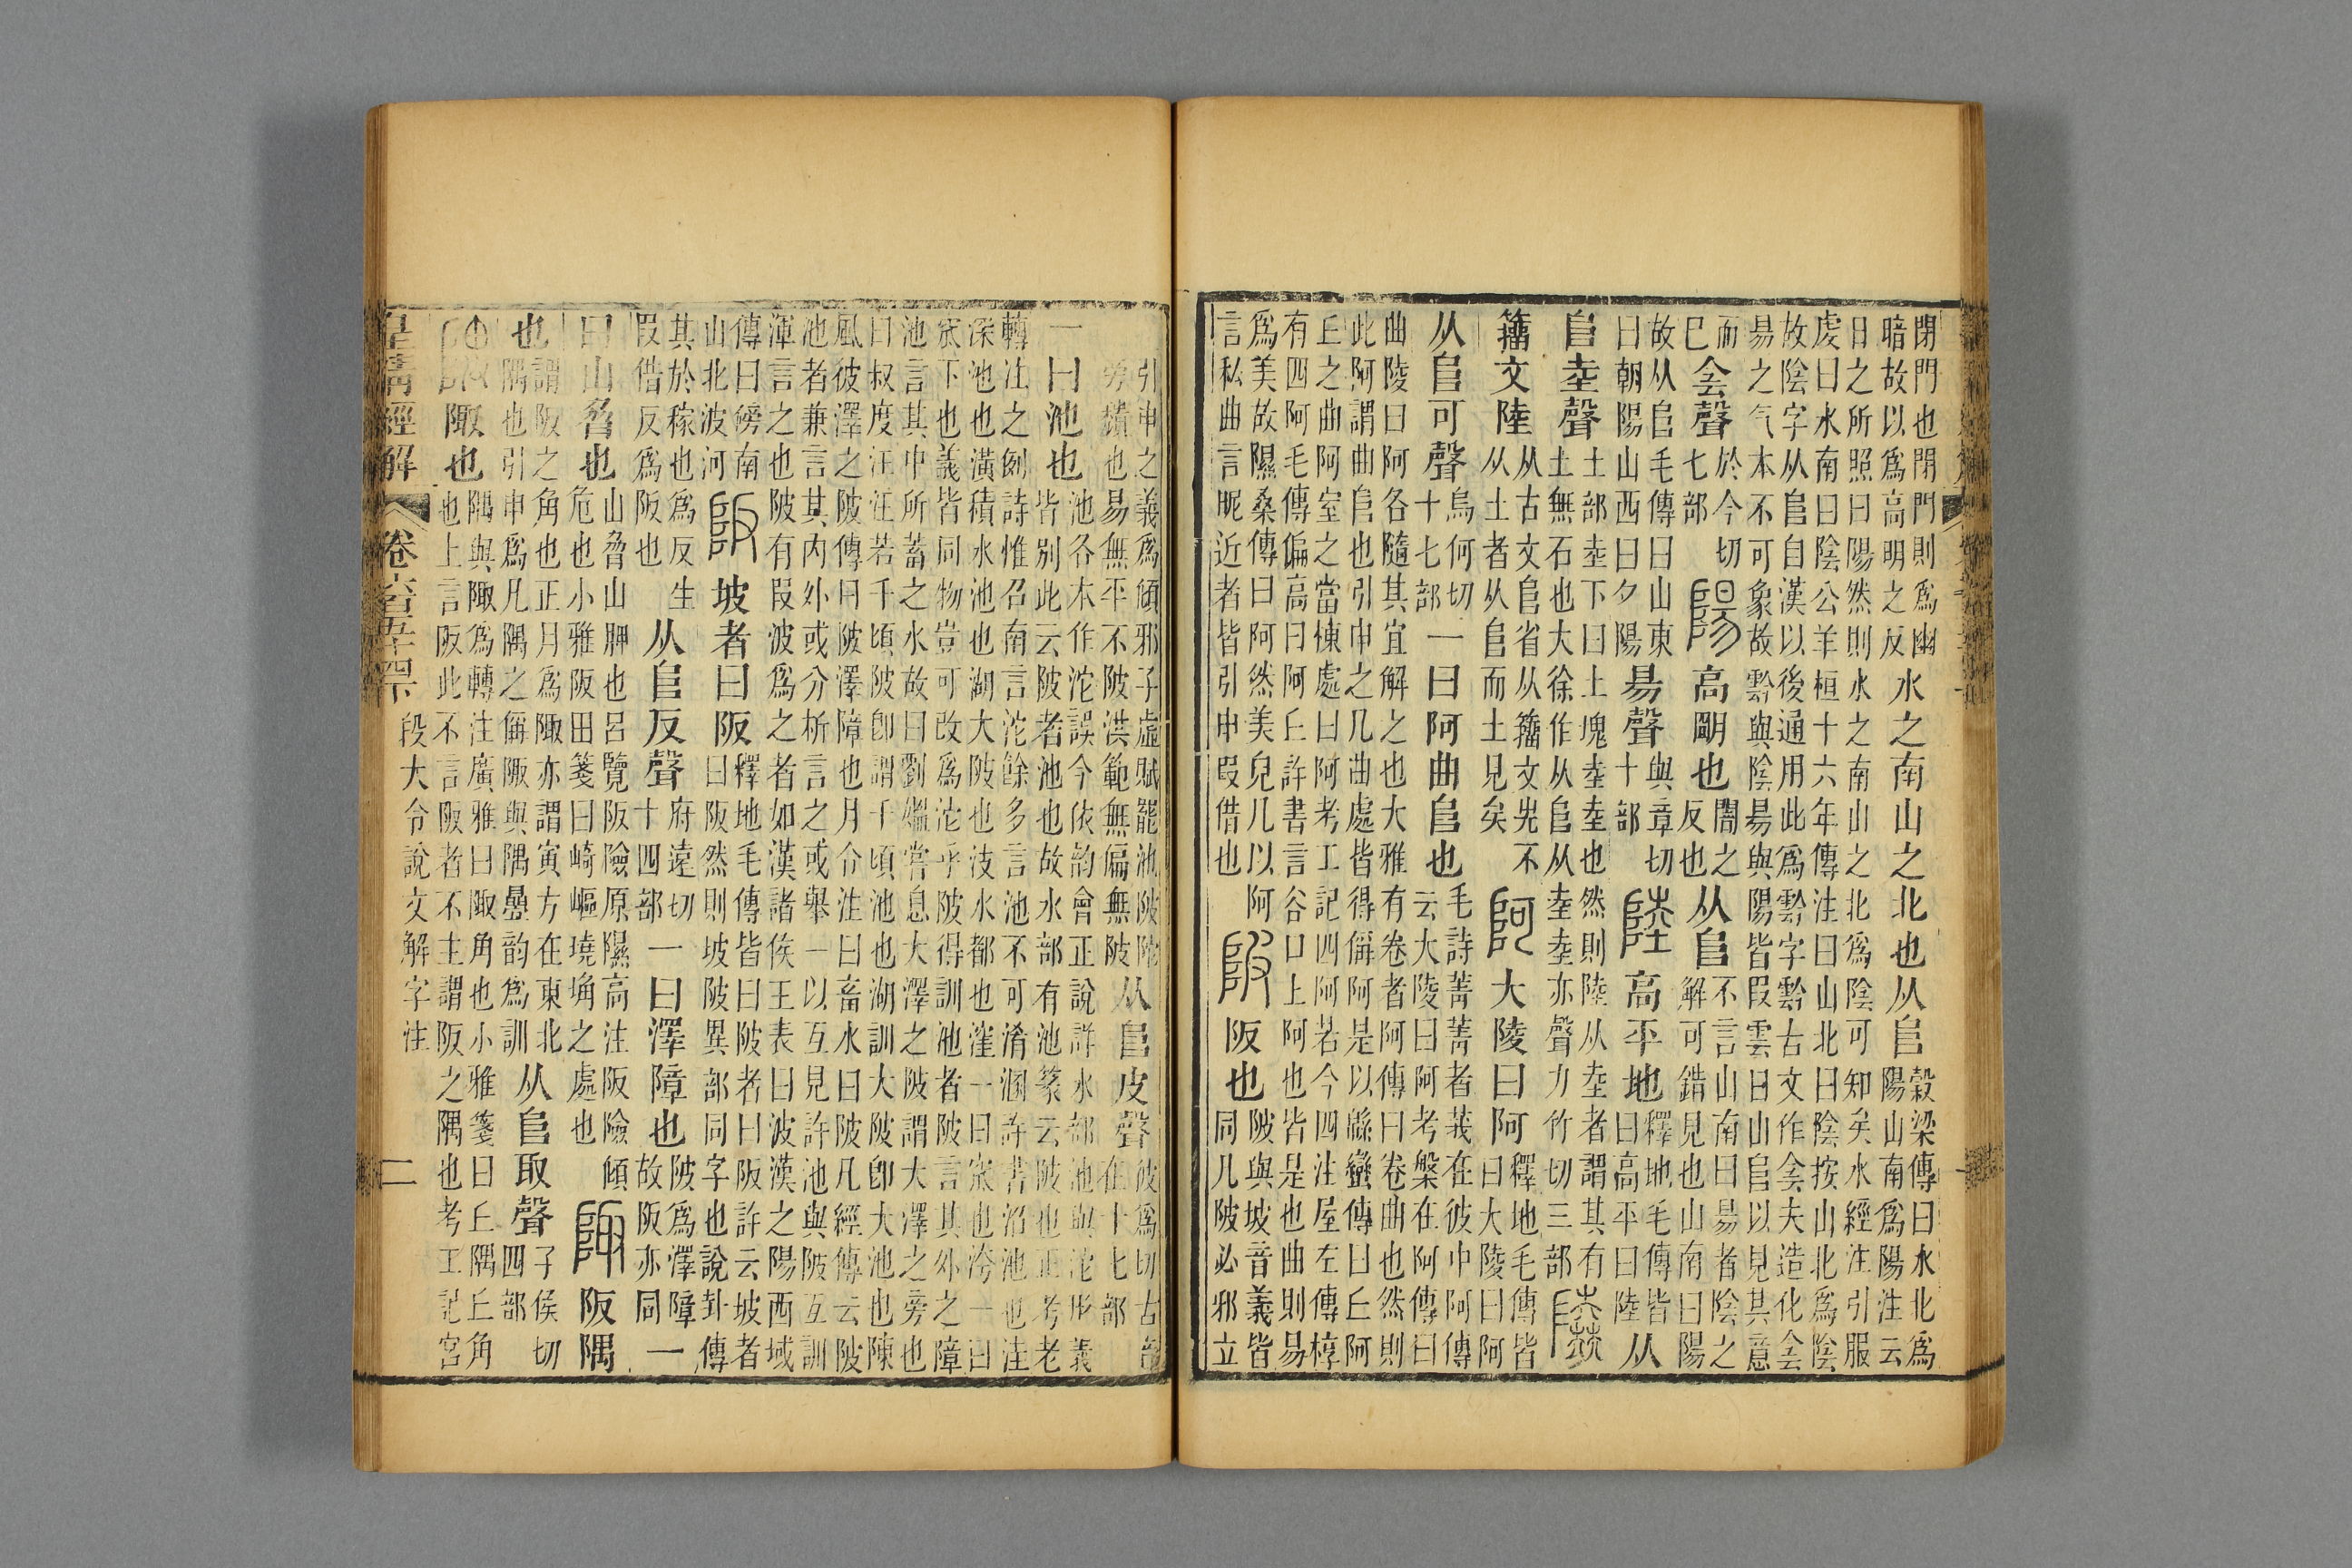 閉門也閉門則爲幽
暗故以爲高明之反
水之南山之北也从𨸏
穀梁傳曰水北爲
陽山南爲陽注云
日之所照曰陽然則水之南山之北爲陰可知矣水經注引服
虔曰水南曰陰公羊桓十六年傳注曰山北曰陰按山北爲陰
故陰字从𨸏自漢以後通用此爲霒字霒古文作侌夫造化侌
昜之气本不可象故霒與陰昜與陽皆叚雲日山𨸏以見其意
而
巳
侌聲
於今切
七部
陽
高朙也
闇之
反也
从𨸏
不言山南曰昜者陰之
解可錯見也山南曰陽
故从𨸏毛傳曰山東
曰朝陽山西曰夕陽
昜聲
與章切
十部
陸
高平地
釋地毛傳皆
曰高平曰陸
从
𨸏坴聲
土部坴下曰土塊坴坴也然則陸从坴者謂其有
土無石也大徐作从𨸏从坴坴亦聲力竹切三部
籒文陸
从古文𨸏省从籒文兂不
从土者从𨸏而土見矣
阿
大陵曰阿
釋地毛傳皆
曰大陵曰阿
从𨸏可聲
烏何切
十七部
一曰阿曲𨸏也
毛詩菁菁者莪在彼中阿傳
云大陵曰阿考槃在阿傳曰
曲陵曰阿各隨其宜解之也大雅有卷者阿傳曰卷曲也然則
此阿謂曲𨸏也引申之凡曲處皆得偁阿是以緜蠻傳曰丘阿
丘之曲阿室之當棟處曰阿考工記四阿若今四注屋左傳椁
有四阿毛傳偏高曰阿丘許書言谷口上阿也皆是也曲則易
爲美故隰桑傳曰阿然美皃凡以阿
言私曲言昵近者皆引申叚借也
陂
阪也
陂與坡音義皆
同凡陂必邪立
引申之義爲傾邪子虛賦罷池陂陁
旁穨也易無平不陂洪範無偏無陂
从𨸏皮聲
彼爲切古音
在十七部
一曰池也
池各本作沱誤今依韵會正說詳水部池與沱形義
皆別此云陂者池也故水部有池篆云陂也正考老
轉注之例詩惟召南言沱餘多言池不可淆溷許書沼池也洼
深池也潢積水池也湖大陂也汥水都也窪一曰窊也洿一曰
窊下也義皆同物豈可改爲沱乎陂得訓池者陂言其外之障
池言其中所蓄之水故曰劉媼嘗息大澤之陂謂大澤之旁也
曰叔度汪汪若千頃陂卽謂千頃池也湖訓大陂卽大池也陳
風彼澤之陂傳曰陂澤障也月令注曰畜水曰陂凡經傳云陂
池者兼言其内外或分析言之或舉一以互見許池與陂互訓
渾言之也陂有叚波爲之者如漢諸侯王表曰波漢之陽西域
傳曰傍南
山北波河
阪
坡者曰阪
釋地毛傳皆曰陂者曰阪許云坡者
曰阪然則坡陂異部同字也說卦傳
其於稼也爲反生
叚借反爲阪也
从𨸏反聲
府遠切
十四部
一曰澤障也
陂爲澤障
故阪亦同
一
曰山脅也
山脅山胛也呂覽阪險原隰高注阪險傾
危也小雅阪田箋曰崎嶇墝埆之處也
陬
阪隅
也
謂阪之角也正月爲陬亦謂寅方在東北
隅也引申爲凡隅之偁陬與隅曡韵爲訓
从𨸏取聲
子侯切
四部
隅
陬也
隅與陬爲轉注廣雅曰陬角也小雅箋曰丘隅丘角
也上言阪此不言阪者不主謂阪之隅也考工記宮
皇清經解
卷六百五十四下
段大令說文解字注
二